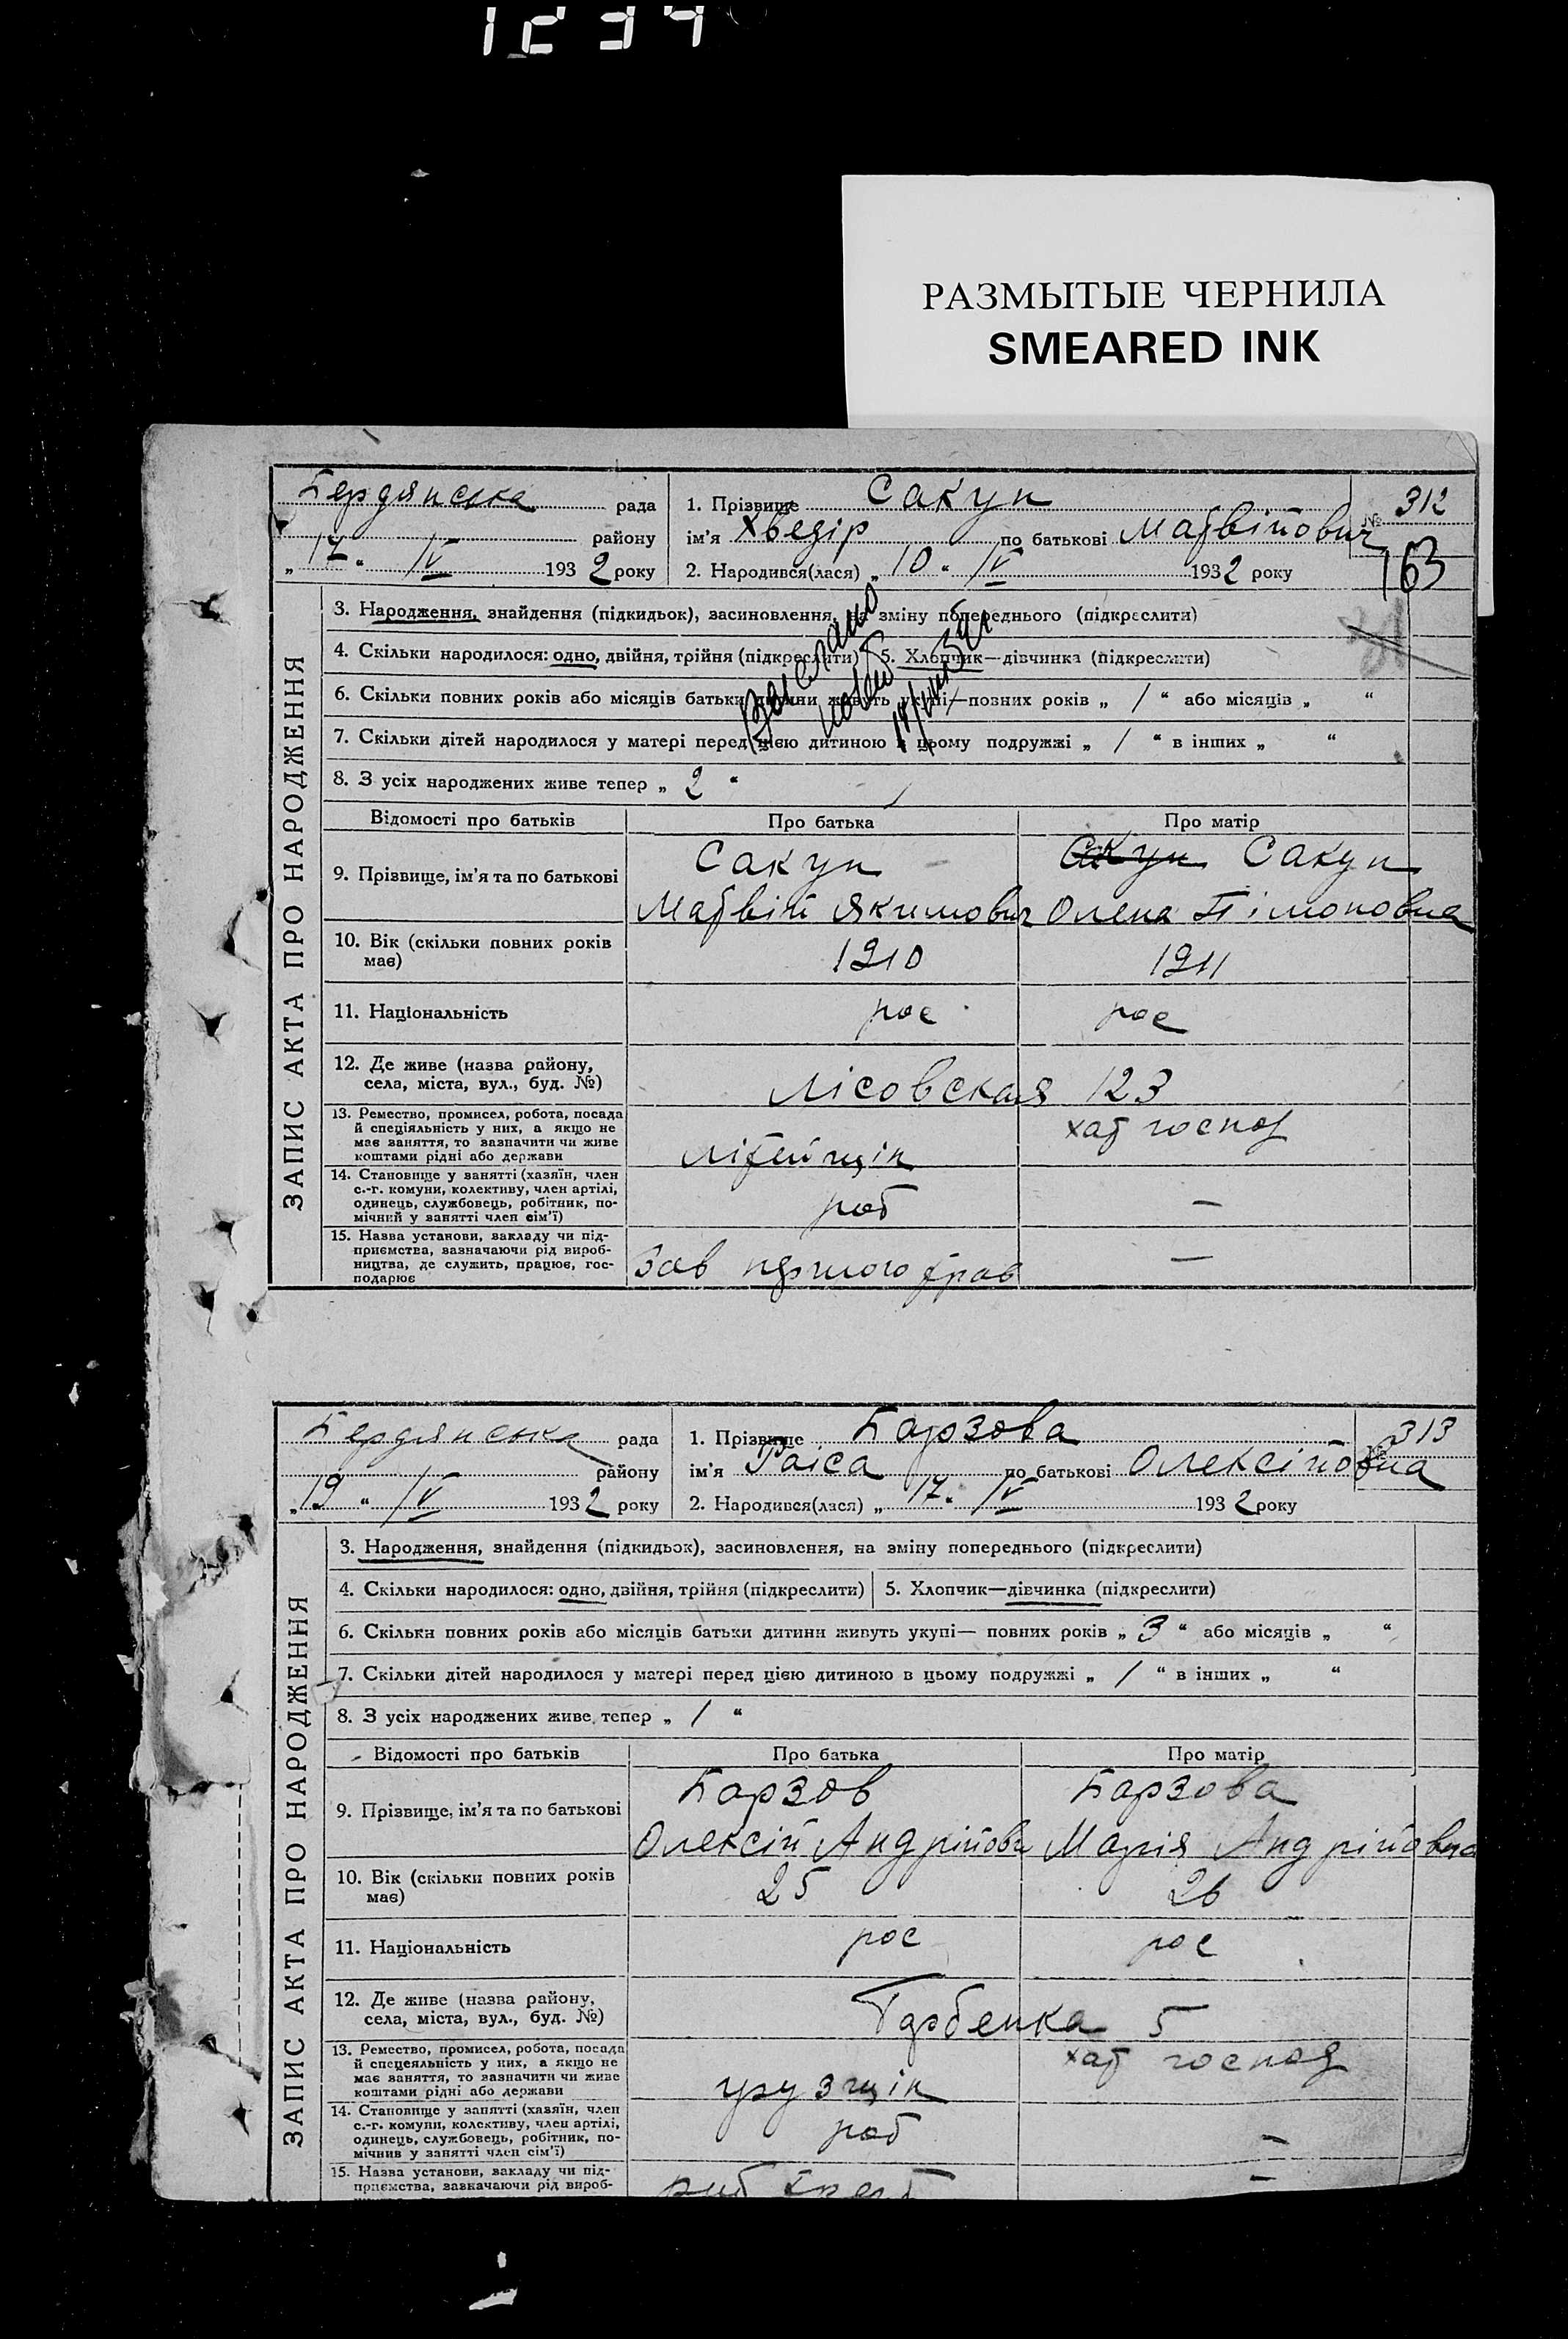 1234
РАЗМЫТЫЕ ЧЕРНИЛА
SMEARED INK
Бердянська рада
району
„17“ IV 1932 року
1. Прізвище Сакун
ім'я Хведір по батькові Матвійович
2. Народився(лася) „10“ IV 1932 року
№ 312
163
ЗАПИС АКТА ПРО НАРОДЖЕННЯ
3. Народження, знайдення (підкидьок), засиновлення, на зміну попереднього (підкреслити)
4. Скільки народилося: одно, двійня, трійня (підкреслити) 5. Хлопчик—дівчинка (підкреслити)
6. Скільки повних років або місяців батьки дитини живуть укупі—повних років „ 1 “ або місяців „ “
7. Скільки дітей народилося у матері перед цією дитиною в цьому подружжі „ 1 “ в інших „ “
8. З усіх народжених живе тепер „ 2 “
Відомості про батьків Про батька Про матір
9. Прізвище, ім'я та по батькові
Сакун
Матвій Якимович
Сакун
Олена Тімоновна
10. Вік (скільки повних років
має)
1910 1911
11. Національність рос рос
12. Де живе (назва району,
села, міста, вул., буд. №)
Лісовская 123
13. Ремество, промисел, робота, посада
й спеціяльність у них, а якщо не
має заняття, то зазначити чи живе
коштами рідні або держави
літейщік хат господ
14. Становище у занятті (хазяїн, член
с.-г. комуни, колективу, член артілі,
одинець, службовець, робітник, по-
мічний у занятті член сім'ї)
роб —
15. Назва установи, закладу чи під-
приємства, зазначаючи рід вироб-
ництва, де служить, працює, гос-
подарює
Зав першого трав —
Бердянська рада
району
„19“ IV 1932 року
1. Прізвище Барзова
ім'я Раіса по батькові Олексійовна
2. Народився(лася) „17“ IV 1932 року
№ 313
ЗАПИС АКТА ПРО НАРОДЖЕННЯ
3. Народження, знайдення (підкидьок), засиновлення, на зміну попереднього (підкреслити)
4. Скільки народилося: одно, двійня, трійня (підкреслити) 5. Хлопчик—дівчинка (підкреслити)
6. Скільки повних років або місяців батьки дитини живуть укупі— повних років „ 3 “ або місяців „ “
7. Скільки дітей народилося у матері перед цією дитиною в цьому подружжі „ 1 “ в інших „ “
8. З усіх народжених живе тепер „ 1 “
Відомості про батьків Про батька Про матір
9. Прізвище, ім'я та по батькові
Барзов
Олексій Андрійови
Барзова
Марія Андрійовна
10. Вік (скільки повних років
має)
25 26
11. Національність рос рос
12. Де живе (назва району,
села, міста, вул., буд. №)
Горбенка 5
13. Ремество, промисел, робота, посада
й спецеяльність у них, а якщо не
має заняття, то зазначити чи живе
коштами рідні або держави
грузщік хат господ
14. Становище у занятті (хазяїн, член
с.-г. комуни, колективу, член артілі,
одинець, службовець, робітник, по-
мічнив у занятті член сім'ї)
роб —
15. Назва установи, закладу чи під-
приємства, зазначаючи рід вироб-
—